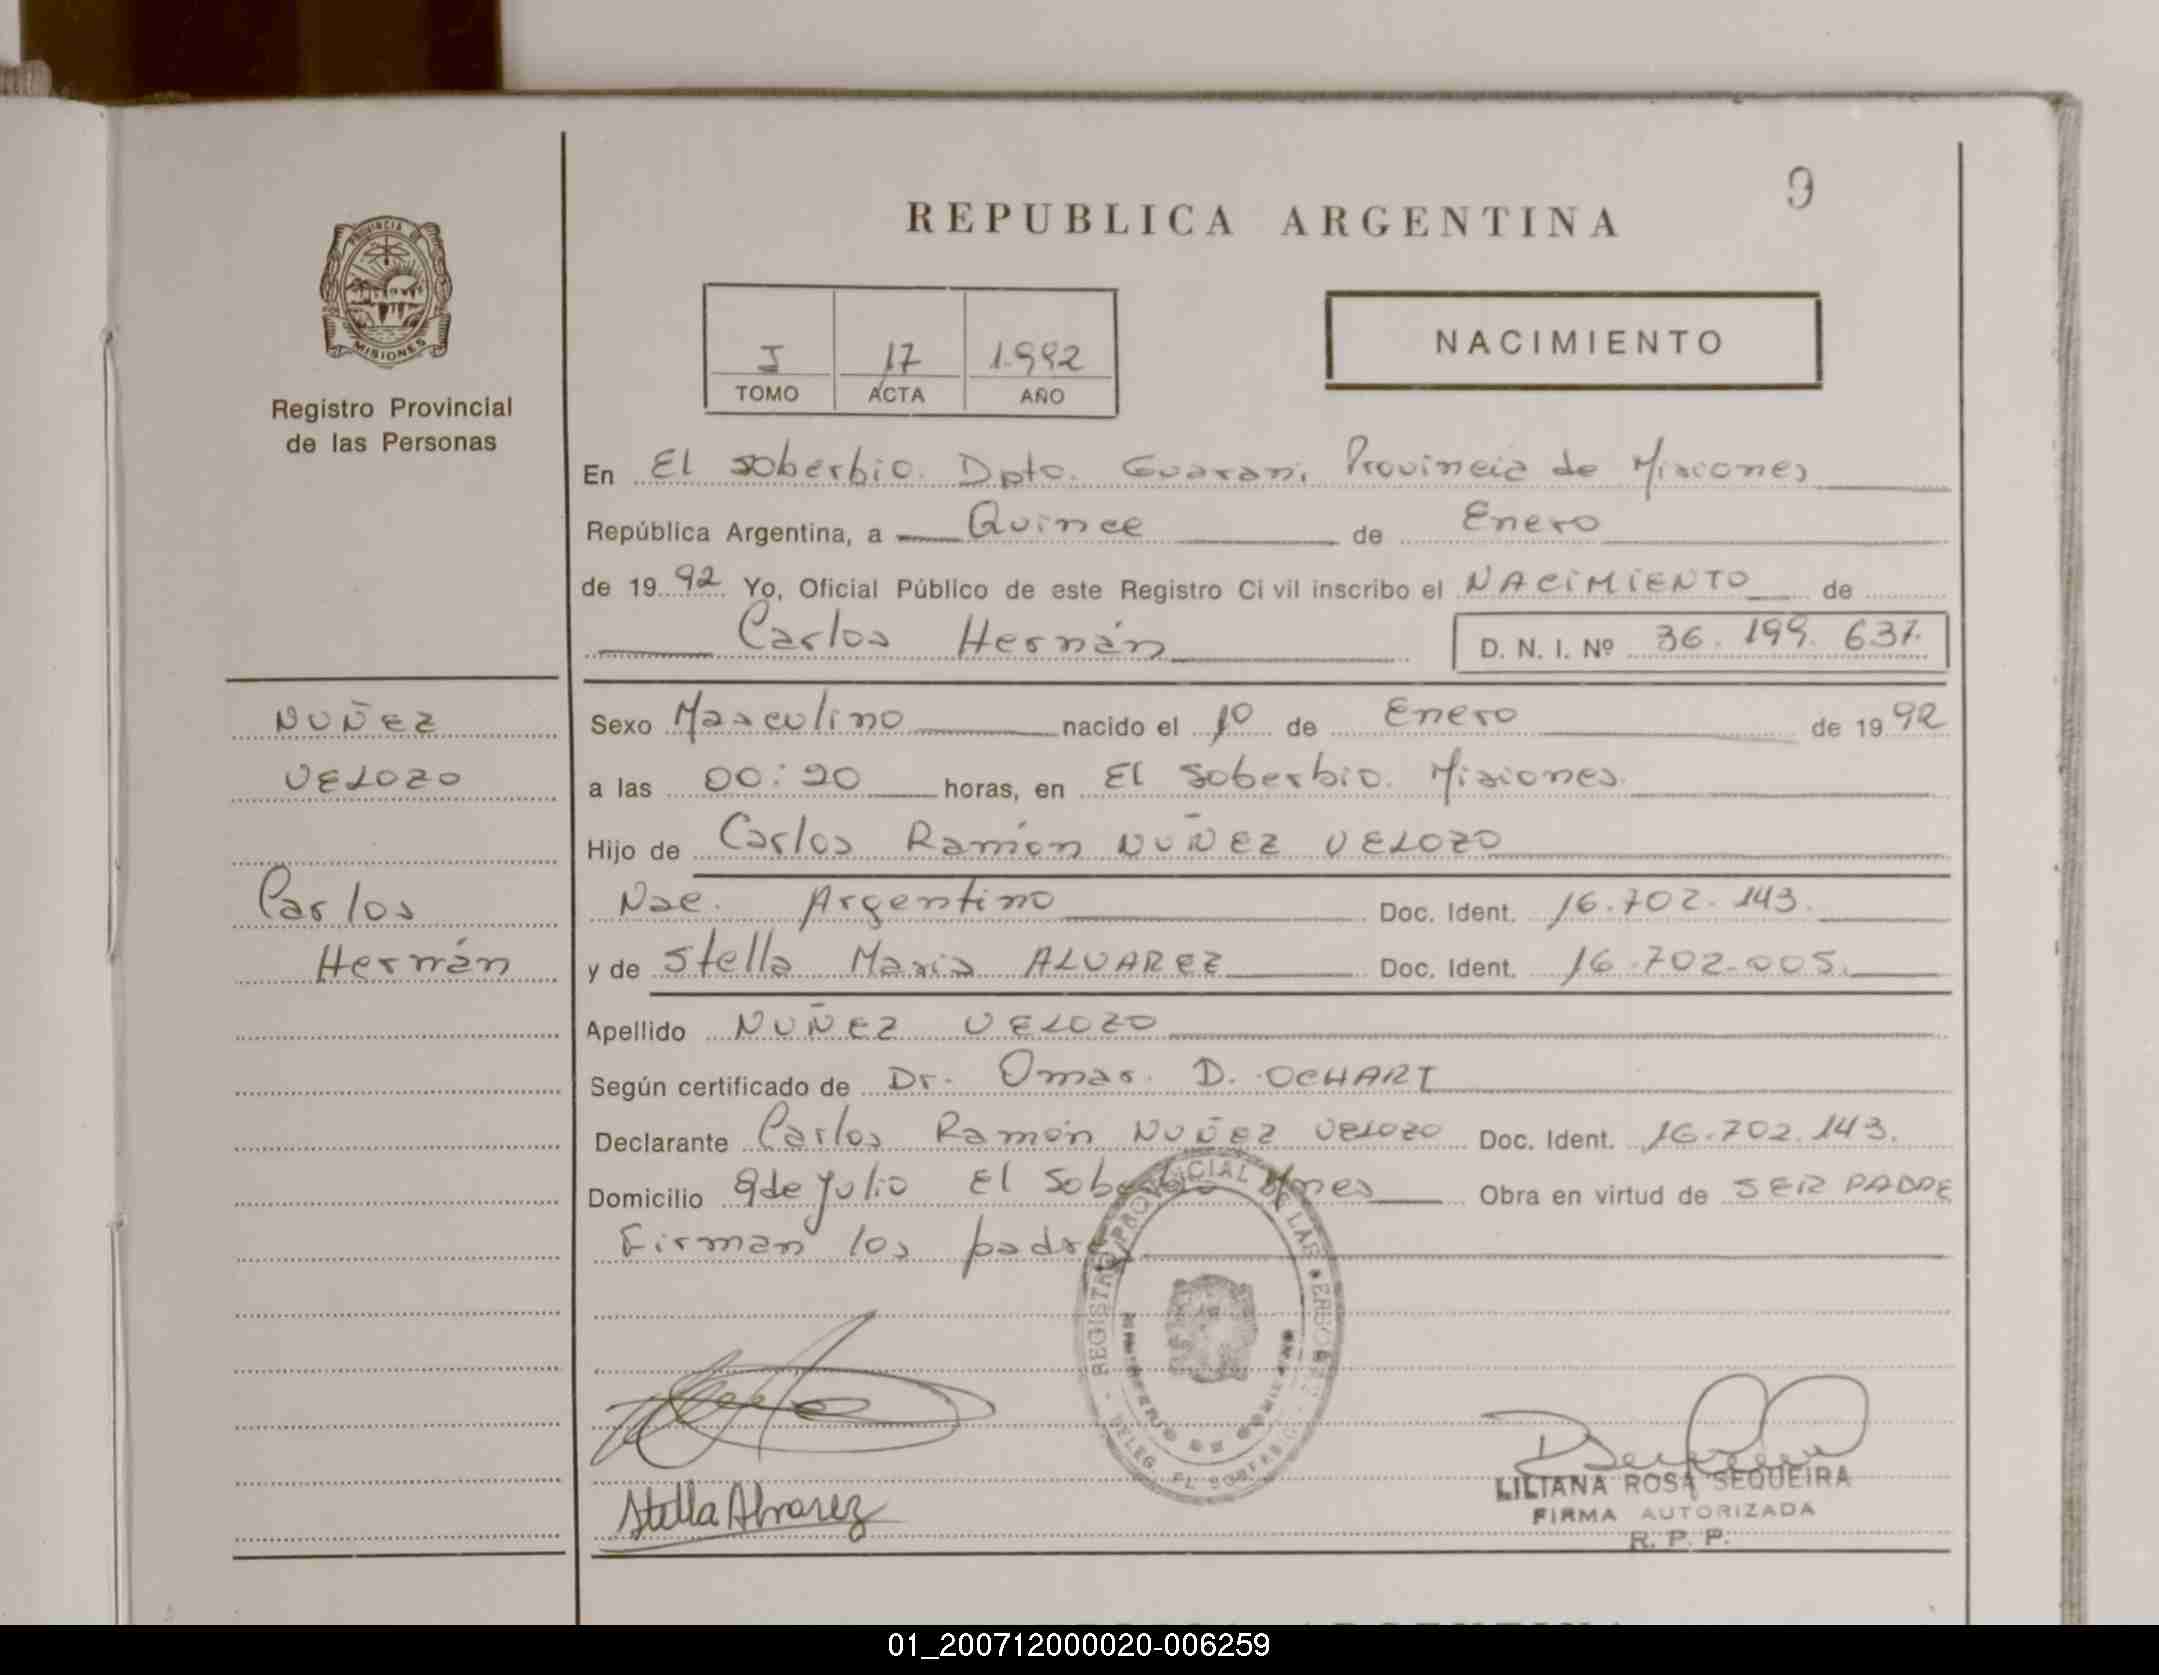 9
REPUBLICA ARGENTINA
PROVINCIA DE
MISIONES
Registro Provincial
de las Personas
I 17 1.992
TOMO ACTA AÑO
NACIMIENTO
En El Soberbio. Dpto. Guarani Provincia de Misiones
República Argentina, a Quince de Enero
de 19 92 Yo, Oficial Público de este Registro Civil inscribo el NACIMIENTO de
Carlos Hernán
D. N. I. Nº 36.199.637.
NUÑEZ
VELOZO
Carlos
Hernán
Sexo Masculino nacido el 1º de Enero de 19 92
a las 00:20 horas, en El Soberbio. Misiones.
Hijo de Carlos Ramón NUÑEZ VELOZO
Nac. Argentino Doc. Ident. 16.702.143.
y de Stella Maris ALVAREZ Doc. Ident. 16.702.005.
Apellido NUÑEZ VELOZO
Según certificado de Dr. Omar D. OCHART
Declarante Carlos Ramón NUÑEZ VELOZO Doc. Ident. 16.702.143.
Domicilio 9 de Julio El Soberbio Mnes Obra en virtud de SER PADRE
Firman los padres
REGISTRO PROVINCIAL DE LAS PERSONAS
DELEG. EL SOBERBIO
Stella Alvarez
LILIANA ROSA SEQUEIRA
FIRMA AUTORIZADA
R. P. P.
01_200712000020-006259